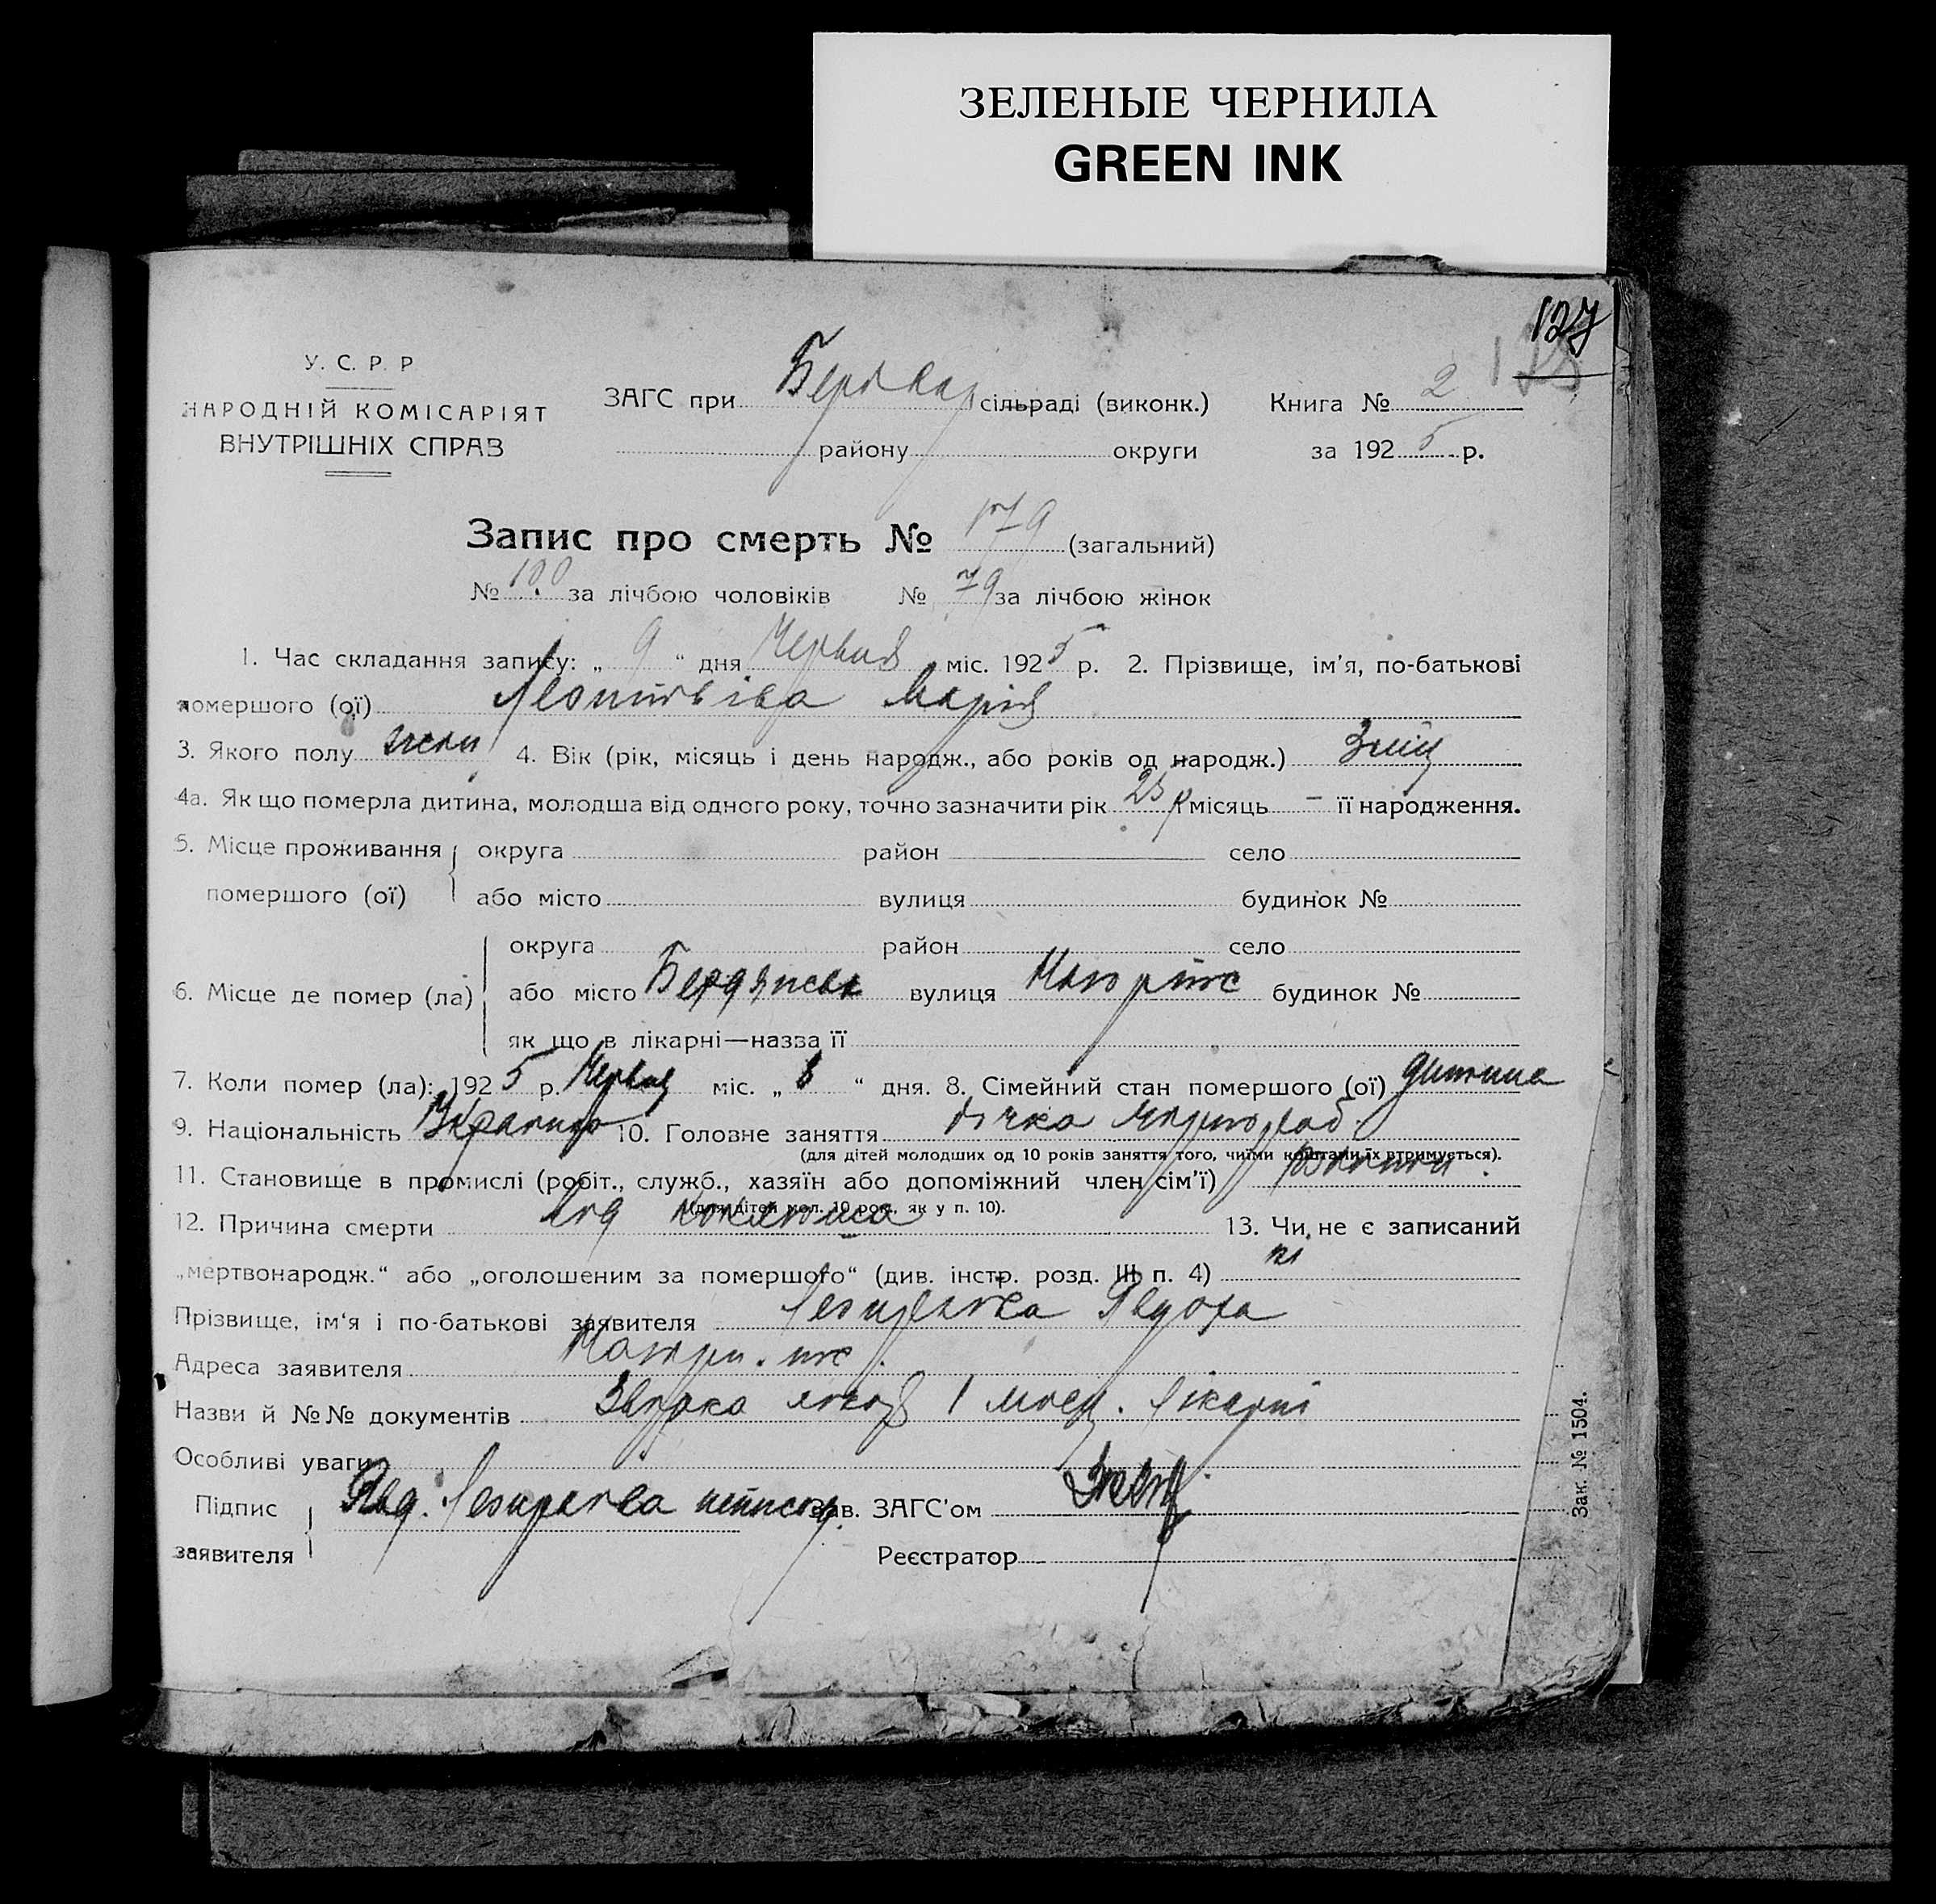 ЗЕЛЕНЫЕ ЧЕРНИЛА
GREEN INK
127
У. С. Р. Р
НАРОДНІЙ КОМІСАРІЯТ
ВНУТРІШНІХ СПРАВ
ЗАГС при сільраді (виконк.) Книга № 2
району округи за 1925 р.
Запис про смерть № 179 (загальний)
№ 100 за лічбою чоловіків № 79 за лічбою жінок
1. Час складання запису: „ 9 “ дня Червня міс. 1925 р. 2. Прізвище, ім'я, по-батькові
помершого (ої) Марія
3. Якого полу 4. Вік (рік, місяць і день народж., або років од народж.)
4а. Як що померла дитина, молодша від одного року, точно зазначити рік 25 р місяць – її народження.
5. Місце проживання помершого (ої) округа район село
або місто вулиця будинок №
6. Місце де помер (ла) округа район село
або місто Бердянськ вулиця будинок №
як що в лікарні—назва її
7. Коли помер (ла): 1925 р. Червня міс. „ 8 “ дня. 8. Сімейний стан помершого (ої) дитина
9. Національність 10. Головне заняття
(для дітей молодших од 10 років заняття того, чиїми коштами їх втримується).
11. Становище в промислі (робіт., служб., хазяїн або допоміжний член сім'ї)
(для дітей мол. 10 рок., як у п. 10).
12. Причина смерти від коклюша 13. Чи не є записаний
„мертвонародж.“ або „оголошеним за помершого“ (див. інстр. розд. III п. 4) ні
Прізвище, ім'я і по-батькові заявителя Явдоха
Адреса заявителя
Назви й №№ документів лікаря 1 лікарні
Особливі уваги
Підпис заявителя Явд. Зав. ЗАГС'ом
Реєстратор
Зак. № 1504.